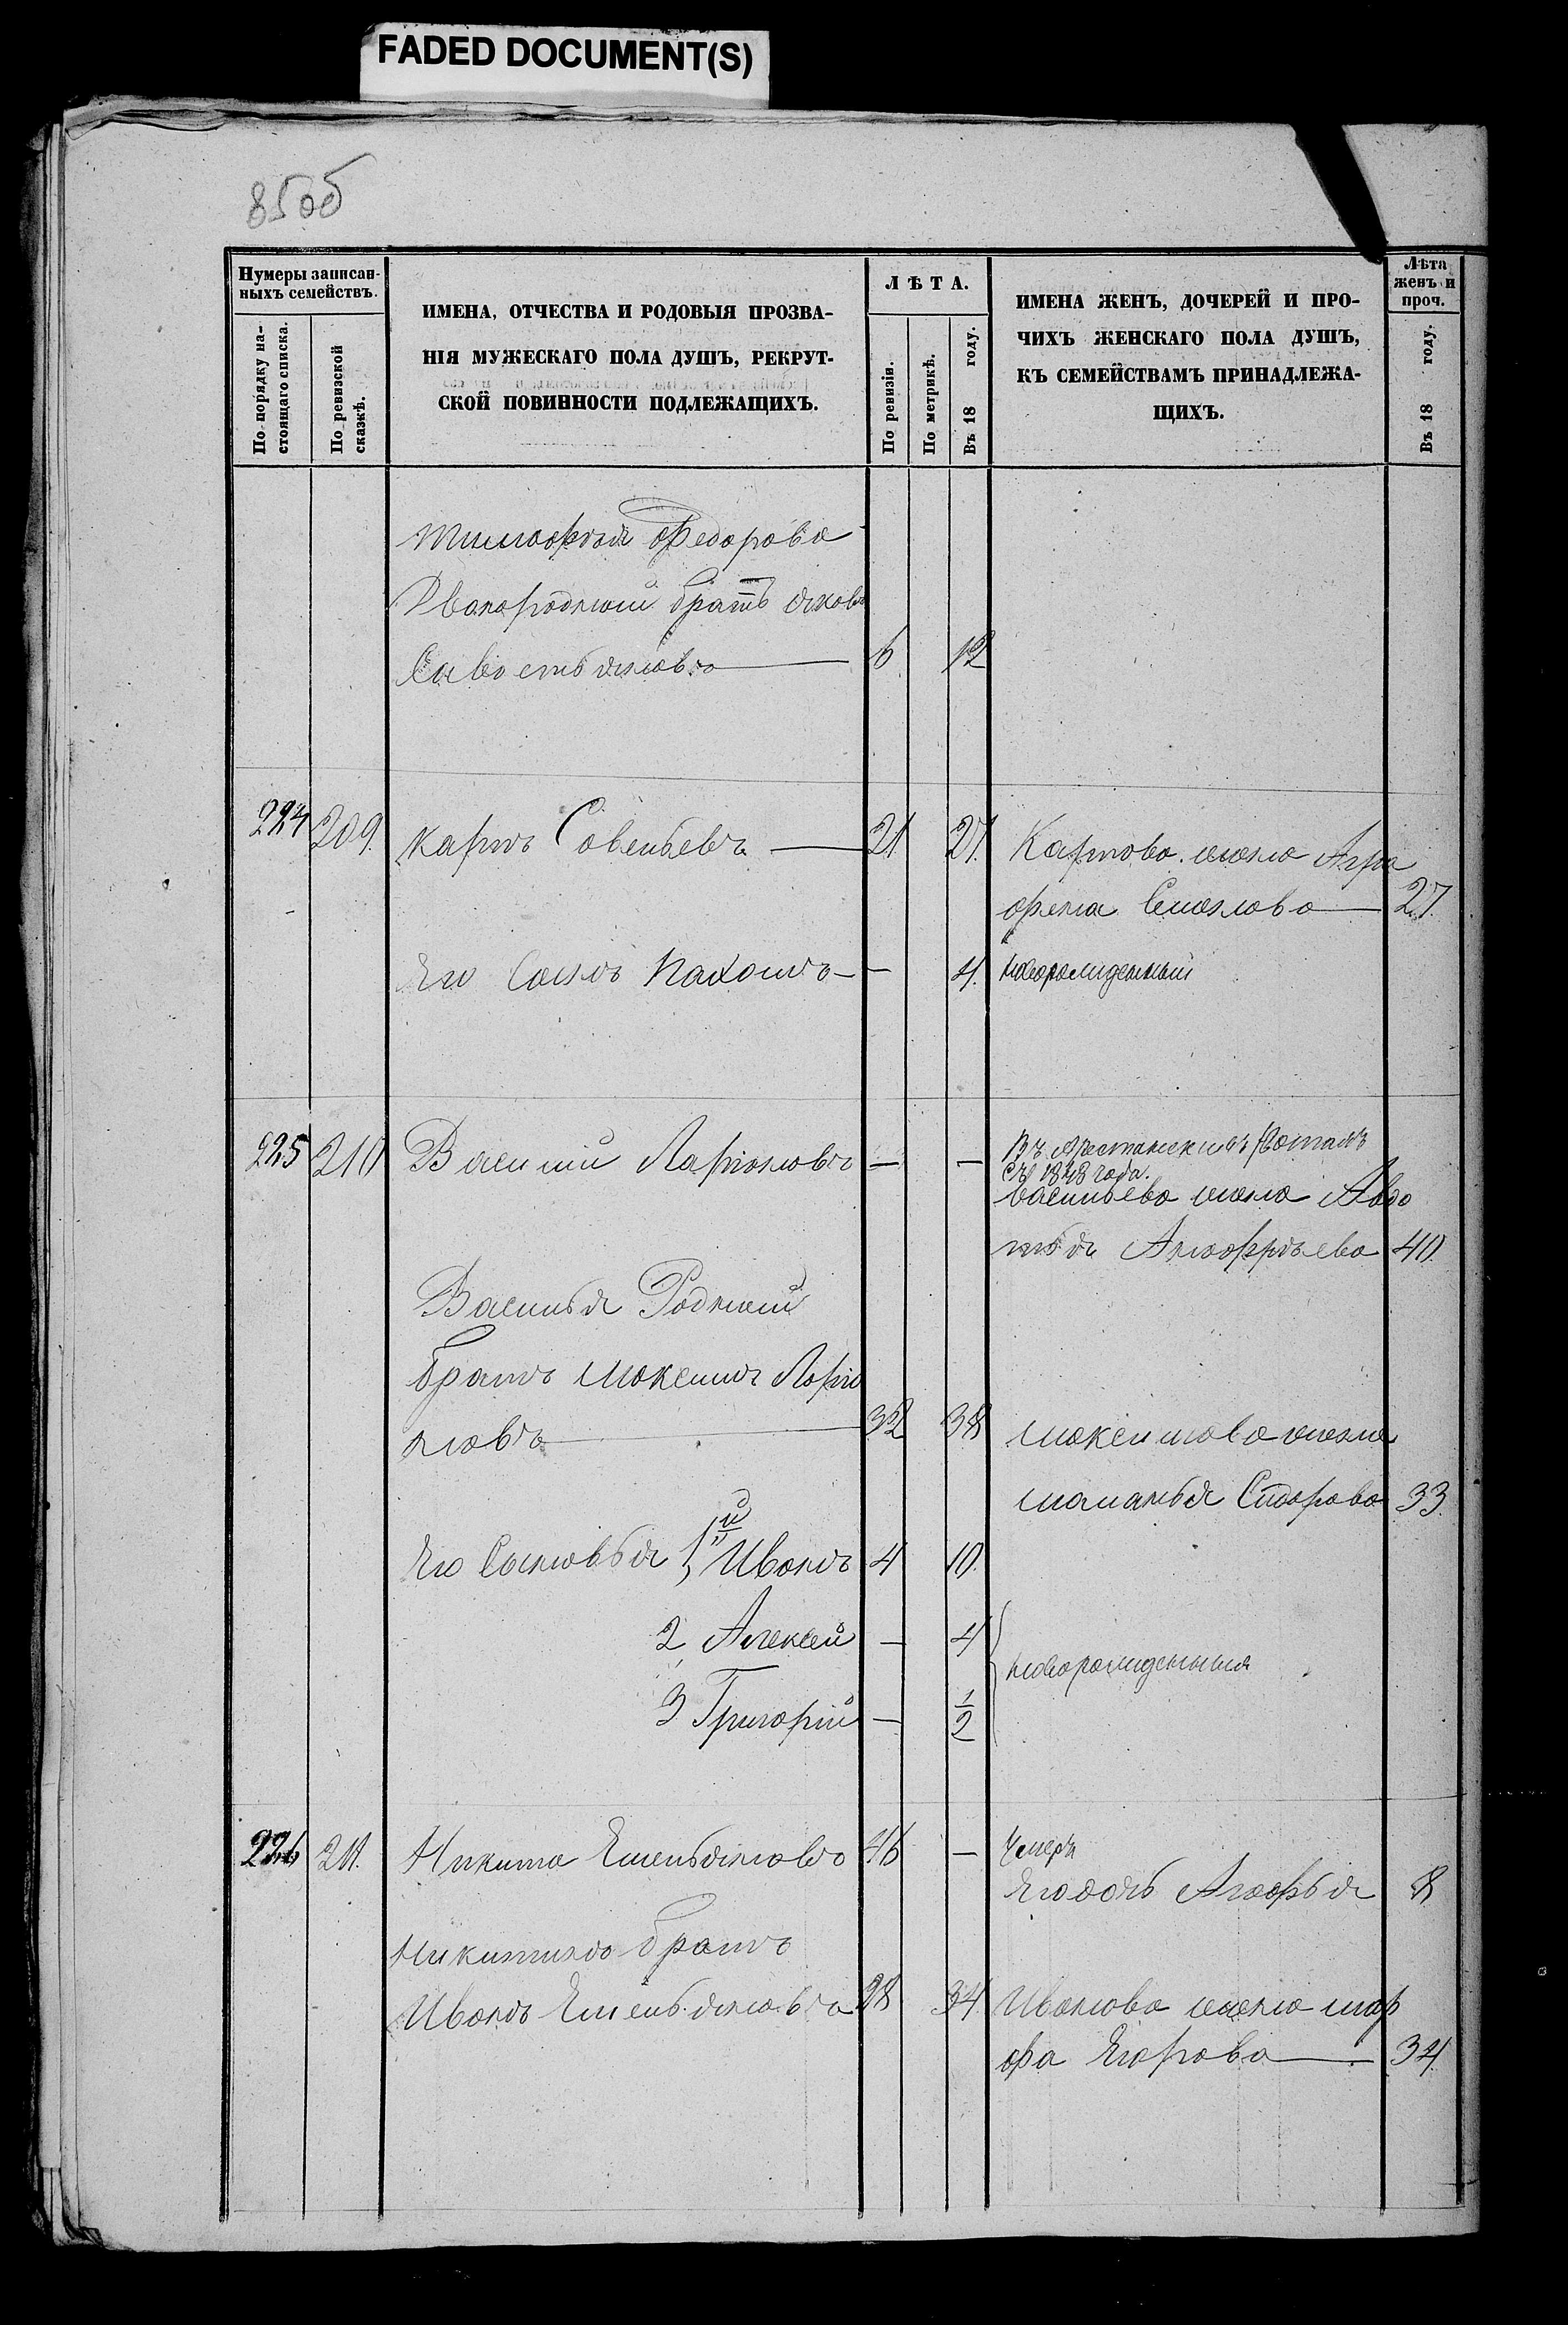 FADED DOCUMENT(S)
85об
Нумеры записан-
ныхъ семействъ.
По порядку на-
стоящаго списка.
По ревизской
сказкѣ.
ИМЕНА, ОТЧЕСТВА И РОДОВЫЯ ПРОЗВА-
НІЯ МУЖЕСКАГО ПОЛА ДУШЪ, РЕКРУТ-
СКОЙ ПОВИННОСТИ ПОДЛЕЖАЩИХЪ.
ЛѢТА.
По ревизіи.
По метрикѣ.
Въ 18 году.
ИМЕНА ЖЕНЪ, ДОЧЕРЕЙ И ПРО-
ЧИХЪ ЖЕНСКАГО ПОЛА ДУШЪ,
КЪ СЕМЕЙСТВАМЪ ПРИНАДЛЕЖА-
ЩИХЪ.
Лѣта
женъ и
проч.
Въ 18 году.
Тимофѣя Федорова
Двоюродной братъ Яковъ
Савостьяновъ 6 12
224 209. Карпъ Савельевъ 21 27. Карпова жена Агра
фена Семенова 27.
Его Сынъ Пахомъ — 4. новорожденный
225 210 Василий Ларионовъ — — Въ Арестантскихъ ротахъ
съ 1848 года.
Васильева жена Авдо
тья Ануфріева 40.
Василья Родной
братъ Максимъ Ларіо
новъ 32 38 Максимова жена
Маланья Сидорова 33.
Его Сыновья 1й Иванъ 4 10.
2 Алексей — 4
новорожденныя
3 Григорій — 1/2
226 211. Никита Емельяновъ 46 — Умеръ
Его дочь Агафья 8
Никитинъ братъ
Иванъ Емельяновъ 28 34 Иванова жена мар
фа Егорова 34.